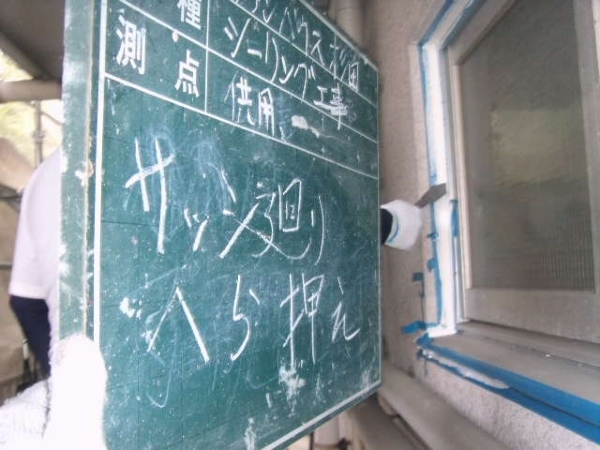 ハウス杉田
種
シーリング工事
測点
供用
サッシ廻り
へら押え